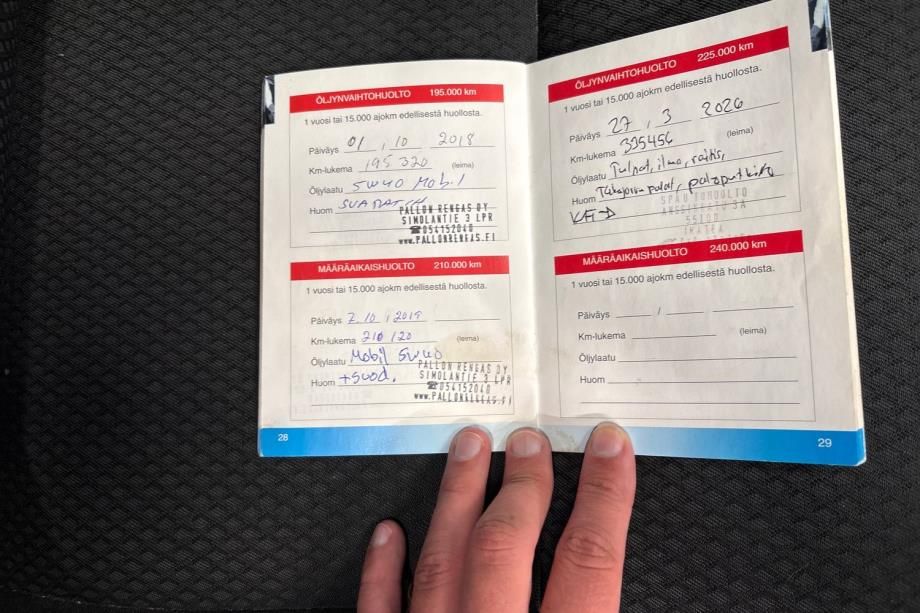 ÖLJYNVAIHTOHUOLTO 195.000 km
1 vuosi tai 15.000 ajokm edellisestä huollosta.
Päiväys 01 , 10 2018
Km-lukema 195 320 (leima)
Öljylaatu 5W40 Mobil
Huom
PALLON RENGAS OY
SIMOLANTIE 3 LPR
☎054152040
www.PALLONRENGAS.FI
MÄÄRÄAIKAISHUOLTO 210.000 km
1 vuosi tai 15.000 ajokm edellisestä huollosta.
Päiväys 2.10 , 2019
Km-lukema 210 120 (leima)
Öljylaatu Mobil 5W40
Huom +suod.
PALLON RENGAS OY
SIMOLANTIE 3 LPR
☎054152040
www.PALLONRENGAS.FI
28
ÖLJYNVAIHTOHUOLTO 225.000 km
1 vuosi tai 15.000 ajokm edellisestä huollosta.
Päiväys 27 , 3 2026
Km-lukema 335456 (leima)
Öljylaatu Tulpat, ilma, raitis,
Huom
55100
IMATRA
MÄÄRÄAIKAISHUOLTO 240.000 km
1 vuosi tai 15.000 ajokm edellisestä huollosta.
Päiväys /
Km-lukema (leima)
Öljylaatu
Huom
29